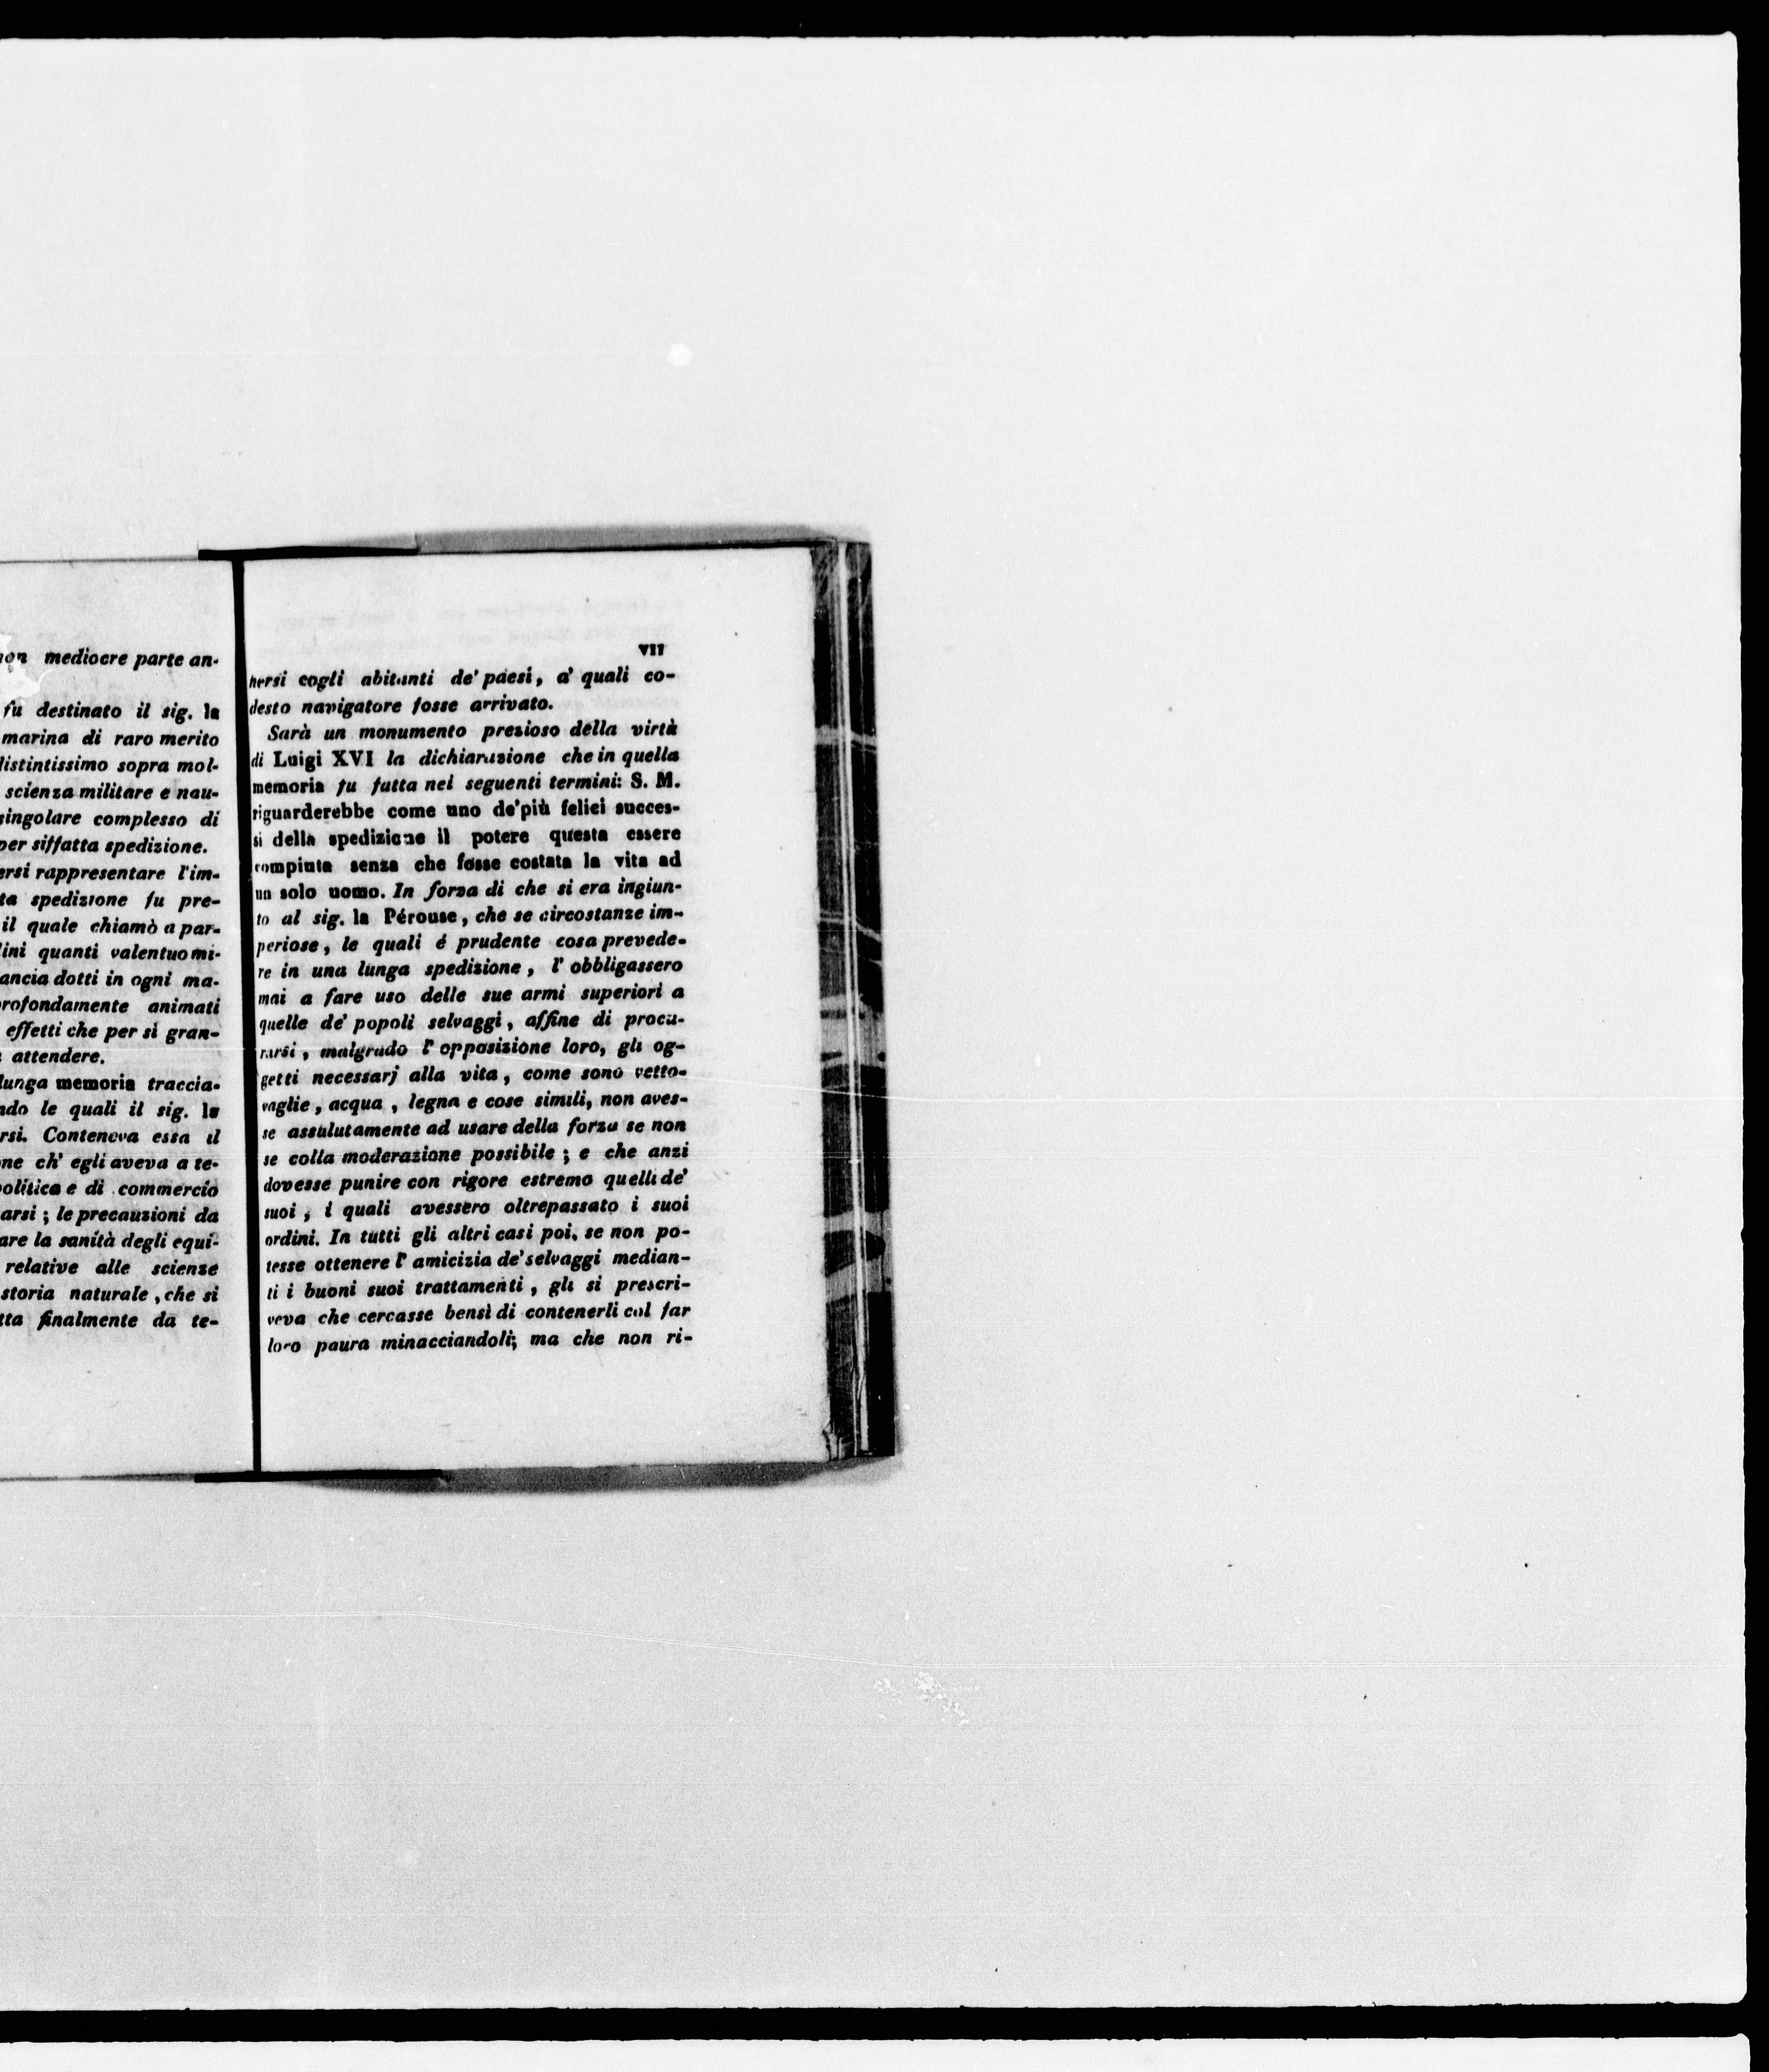 mediocre parte an-
fu destinato il sig. la
marina di raro merito
distintissimo sopra mol-
scienza militare e nau-
singolare complesso di
per siffatta spedizione.
ersi rappresentare l'im-
ta spedizione fu pre-
il quale chiamò a par-
lini quanti valentuomi-
ancia dotti in ogni ma-
rofondamente animati
effetti che per sì gran-
attendere.
lunga memoria traccia-
ndo le quali il sig. la
rsi. Conteneva essa il
ne ch' egli aveva a te-
politica e di commercio
arsi ; le precauzioni da
are la sanità degli equi-
relative alle scienze
storia naturale, che si
tta finalmente da te-
VII
nersi cogli abitanti de' paesi, a' quali co-
desto navigatore fosse arrivato.
Sarà un monumento prezioso della virtù
di Luigi XVI la dichiarazione che in quella
memoria fu fatta nei seguenti termini: S. M.
riguarderebbe come uno de' più felici succes-
si della spedizione il potere questa essere
compiuta senza che fosse costata la vita ad
un solo uomo. In forza di che si era ingiun-
to al sig. la Pérouse, che se circostanze im-
periose, le quali é prudente cosa prevede-
re in una lunga spedizione, l' obbligassero
mai a fare uso delle sue armi superiori a
quelle de' popoli selvaggi, affine di procu-
rarsi, malgrado l' opposizione loro, gli og-
getti necessarj alla vita, come sono vetto-
vaglie, acqua, legna e cose simili, non aves-
se assulutamente ad usare della forza se non
se colla moderazione possibile ; e che anzi
dovesse punire con rigore estremo quelli de'
suoi, i quali avessero oltrepassato i suoi
ordini. In tutti gli altri casi poi, se non po-
tesse ottenere l' amicizia de' selvaggi median-
ti i buoni suoi trattamenti, gli si prescri-
veva che cercasse bensì di contenerli col far
loro paura minacciandoli; ma che non ri-